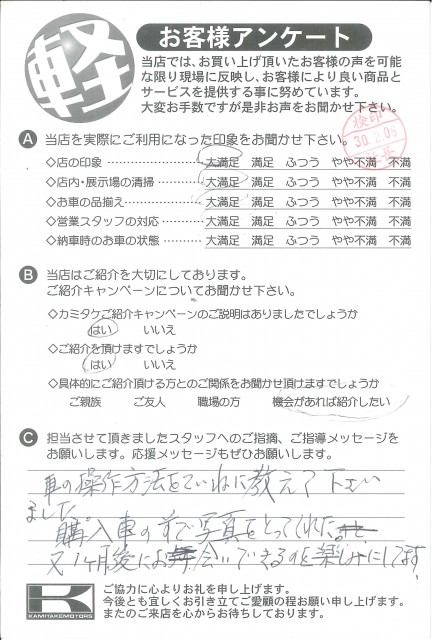 軽
お客様アンケート
当店では、お買い上げ頂いたお客様の声を可能
な限り現場に反映し、お客様により良い商品と
サービスを提供する事に努めています。
大変お手数ですが是非お声をお聞かせ下さい。
検印
30.2.06
A 当店を実際にご利用になった印象をお聞かせ下さい。
◇店の印象 大満足 満足 ふつう やや不満 不満
◇店内・展示場の清掃 大満足 満足 ふつう やや不満 不満
◇お車の品揃え 大満足 満足 ふつう やや不満 不満
◇営業スタッフの対応 大満足 満足 ふつう やや不満 不満
◇納車時のお車の状態 大満足 満足 ふつう やや不満 不満
B 当店はご紹介を大切にしております。
ご紹介キャンペーンについてお聞かせ下さい。
◇カミタケご紹介キャンペーンのご説明はありましたでしょうか
はい いいえ
◇ご紹介を頂けますでしょうか
はい いいえ
◇具体的にご紹介頂ける方とのご関係をお聞かせ頂けますでしょうか
ご親族 ご友人 職場の方 機会があれば紹介したい
C 担当させて頂きましたスタッフへのご指摘、ご指導メッセージを
お願いします。応援メッセージもぜひお願いします。
車の操作方法をていねに教えて下さい
ました。
購入車の前で写真をとってくれた
又1ヶ月後にお会いできるのを楽しみにしてます
K
KAMITAKEMOTORS
ご協力に心よりお礼を申し上げます。
今後とも宜しくお引き立てご愛顧の程お願い申し上げます。
またのご来店を心からお待ちしております。